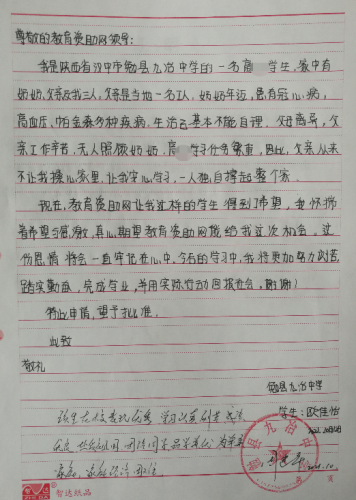 尊敬的教育资助网领导：
我是陕西省汉中市勉县九冶中学的一名高 学生，家中有
奶奶、父亲及我三人，父亲是当地一名工人，奶奶年迈，患有冠心病，
高血压、帕金森多种疾病，生活已基本不能自理，父母离异，父
亲工作辛苦，无人照顾奶奶，高 学习任务繁重，因此，父亲从来
不让我操心家里，让我安心学习，一人独自撑起整个家。
现在，教育资助网让我这样的学生得到了希望，我怀揣
着希望与感激，真心期望教育资助网能给我这次机会。这
份恩情将会一直牢记在心中，今后的学习中，我将更加努力刻苦
踏实勤奋，完成学业，并用实际行动回报社会，谢谢！
特此申请，望予批准。
此致
敬礼
勉县九冶中学
学生：欧佳怡
该生在校表现优秀，学习
勉县九冶中
智达纸品